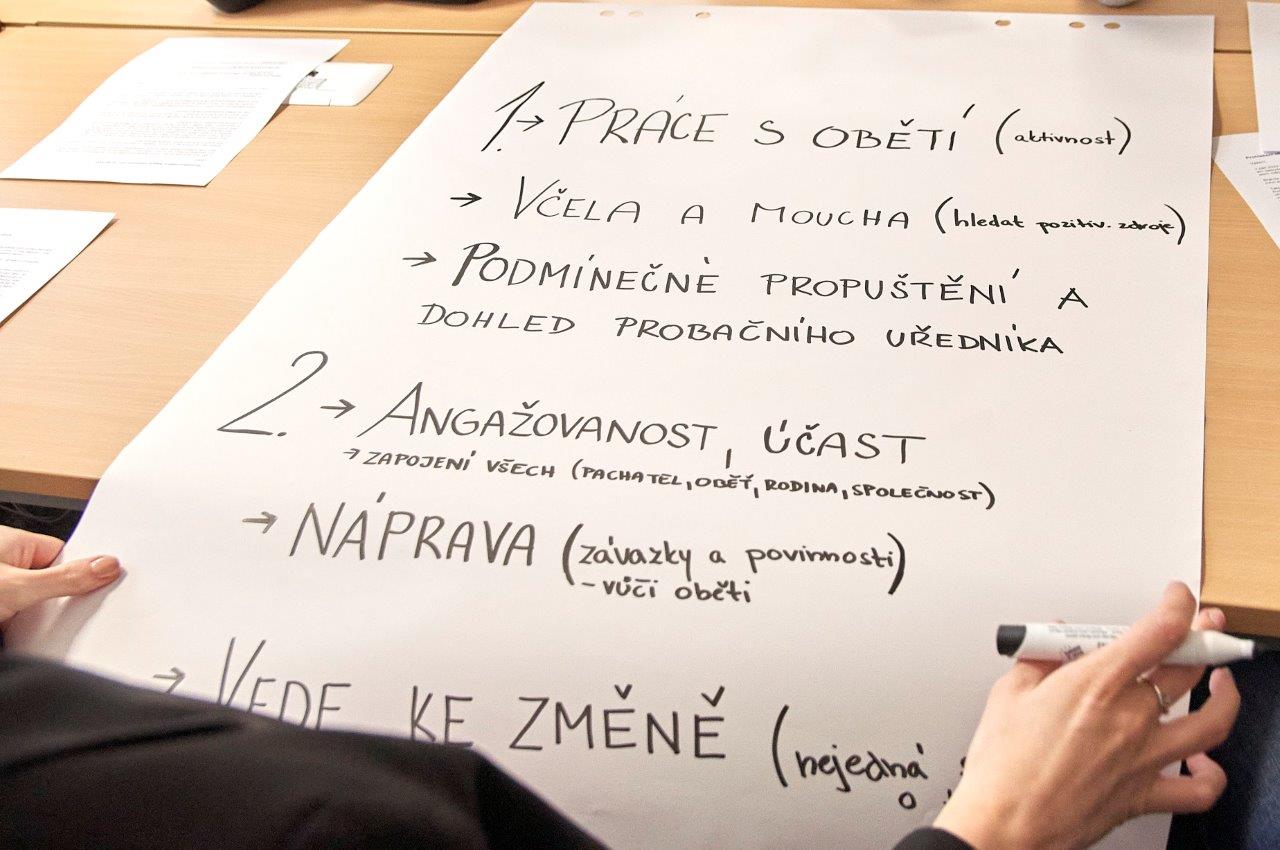 1. → PRÁCE S OBĚTÍ (aktivnost)
→ VČELA A MOUCHA (hledat pozitiv. zdroje)
→ PODMÍNEČNĚ PROPUŠTĚNÍ A
DOHLED PROBAČNÍHO UŘEDNÍKA
2. → ANGAŽOVANOST, ÚČAST
→ ZAPOJENÍ VŠECH (PACHATEL, OBĚŤ, RODINA, SPOLEČNOST)
→ NÁPRAVA (závazky a povinnosti)
- vůči oběti
→ VEDE KE ZMĚNĚ (nejedná
o